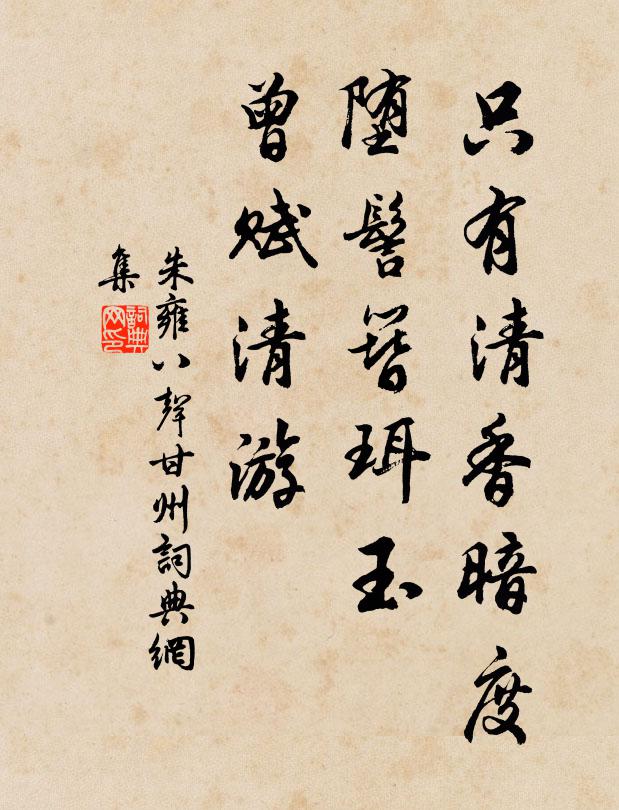 只有清香暗度
堕髻簪珥玉
曾赋清游
朱雍八聲甘州詞典網
集
詞典
网印